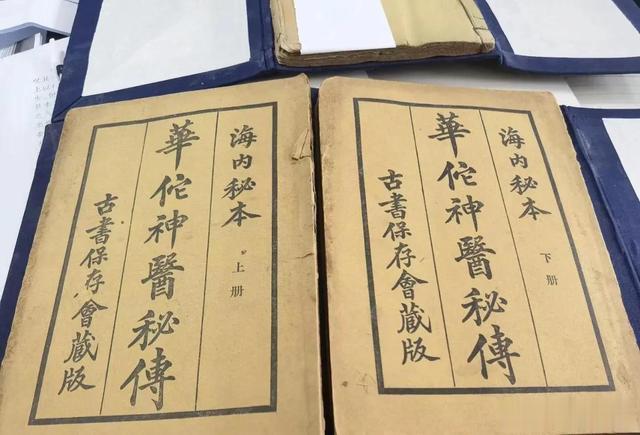 海内秘本
上册
華佗神醫秘傳
古書保存會藏版
海内秘本
下册
華佗神醫秘傳
古書保存會藏版